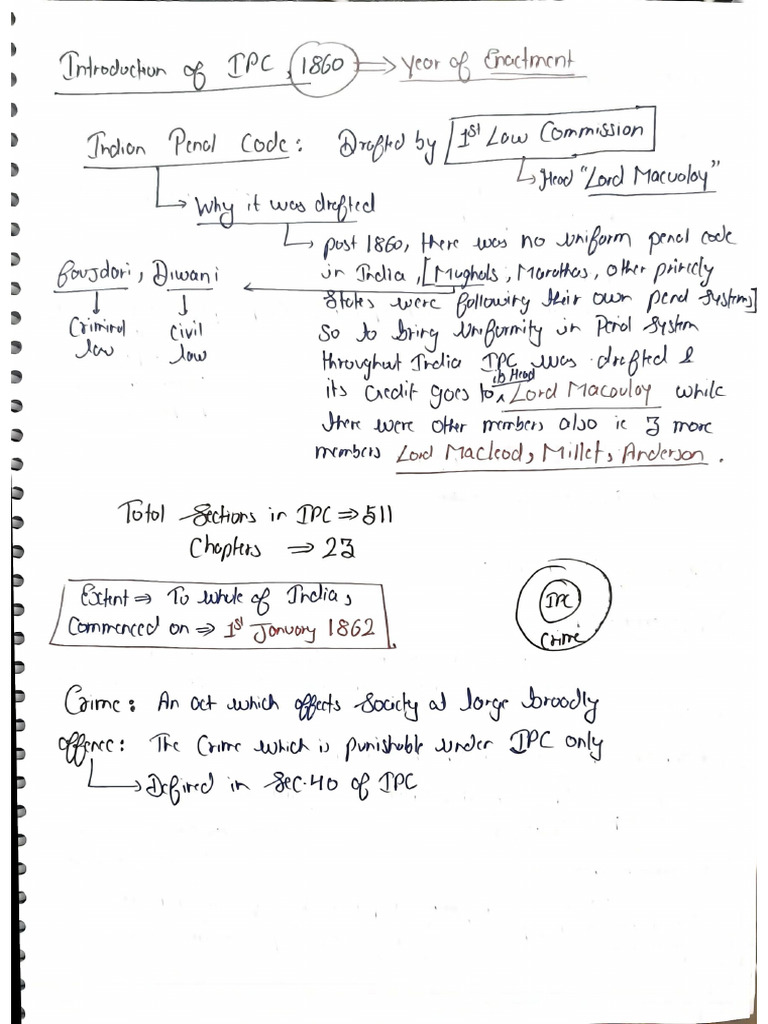 Introduction of IPC, 1860 ⇒ Year of Enactment
Indian Penal Code: Drafted by 1st Law Commission
↳ Head "Lord Macualay"
↳ Why it was drafted
↳ post 1860, there was no uniform penal code
in India, [Mughals, Marathas, other princely
states were following their own penal systems]
Foujdari, Diwani
↓ ↓
Criminal law
Civil law
so to bring Uniformity in Penal System
throughout India IPC was drafted &
its credit goes to its Head Lord Macaulay while
there were other members also ie 3 more
members Lord Macleod, Millet, Anderson.
Total Sections in IPC ⇒ 511
Chapters ⇒ 23
Extent ⇒ To whole of India,
Commenced on ⇒ 1st January 1862
IPC
Crime
Crime: An act which affects Society at large broadly
offence: The Crime which is punishable under IPC only
↳ Defined in Sec. 40 of IPC